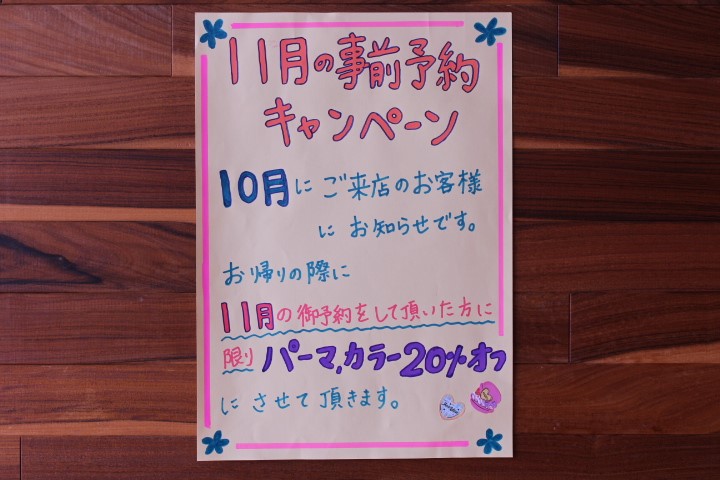 11月の事前予約
キャンペーン
10月にご来店のお客様
にお知らせです。
お帰りの際に
11月の御予約をして頂いた方に
限りパーマ,カラー20%オフ
にさせて頂きます。